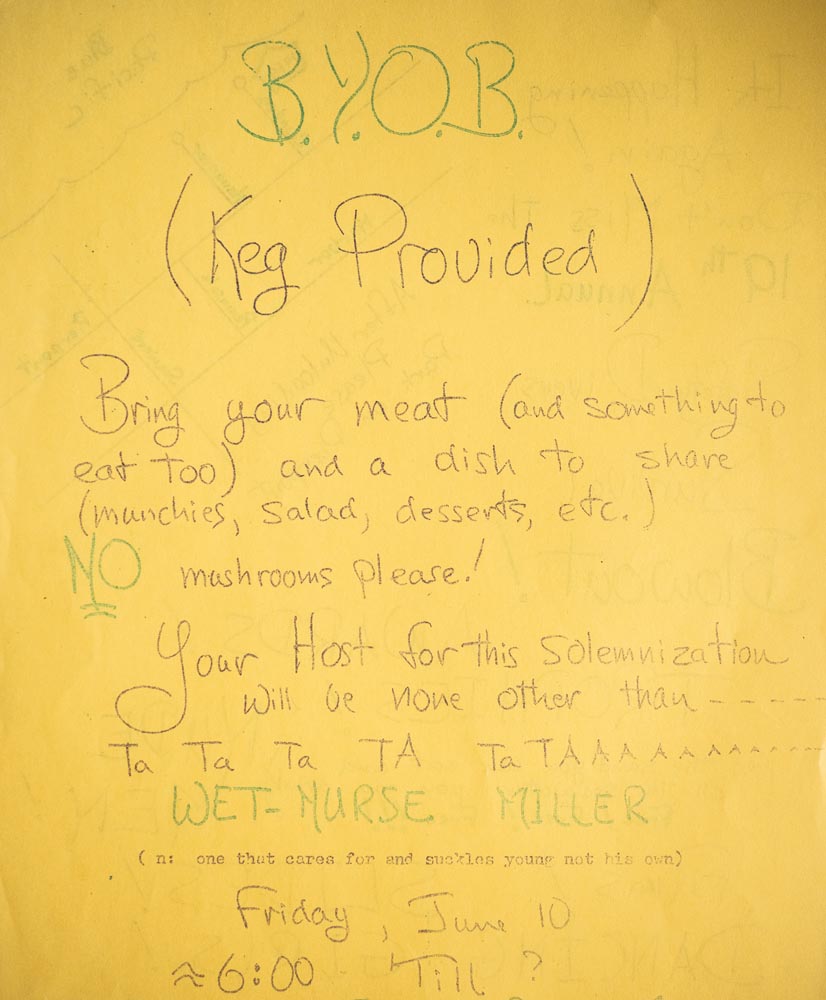 B.Y.O.B.
(Keg Provided)
Bring your meat (and something to
eat too) and a dish to share
(munchies, salad, desserts, etc.)
NO mushrooms please!
Your Host for this Solemnization
will be none other than - - - - -
Ta Ta Ta TA Ta TAAAAAAAA
WET-NURSE MILLER
( n: one that cares for and suckles young not his own)
Friday, June 10
≈ 6:00 Till ?